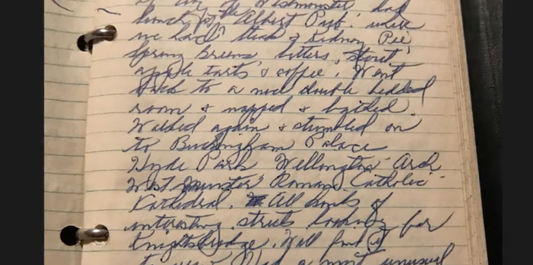 the Westminster had
lunch at the Albert Pub. where
we had Steak & Kidney Pie
Spring Greens bitters, stout
apple tarts & coffee. Went
back to a nice double bedded
room & napped & bathed.
Walked again & stumbled on
to Buckingham Palace
Hyde Park Wellington Arch
Westminster Roman Catholic
Kathedral. All kinds of
interesting streets looking for
Knightsbridge.
a most unusual